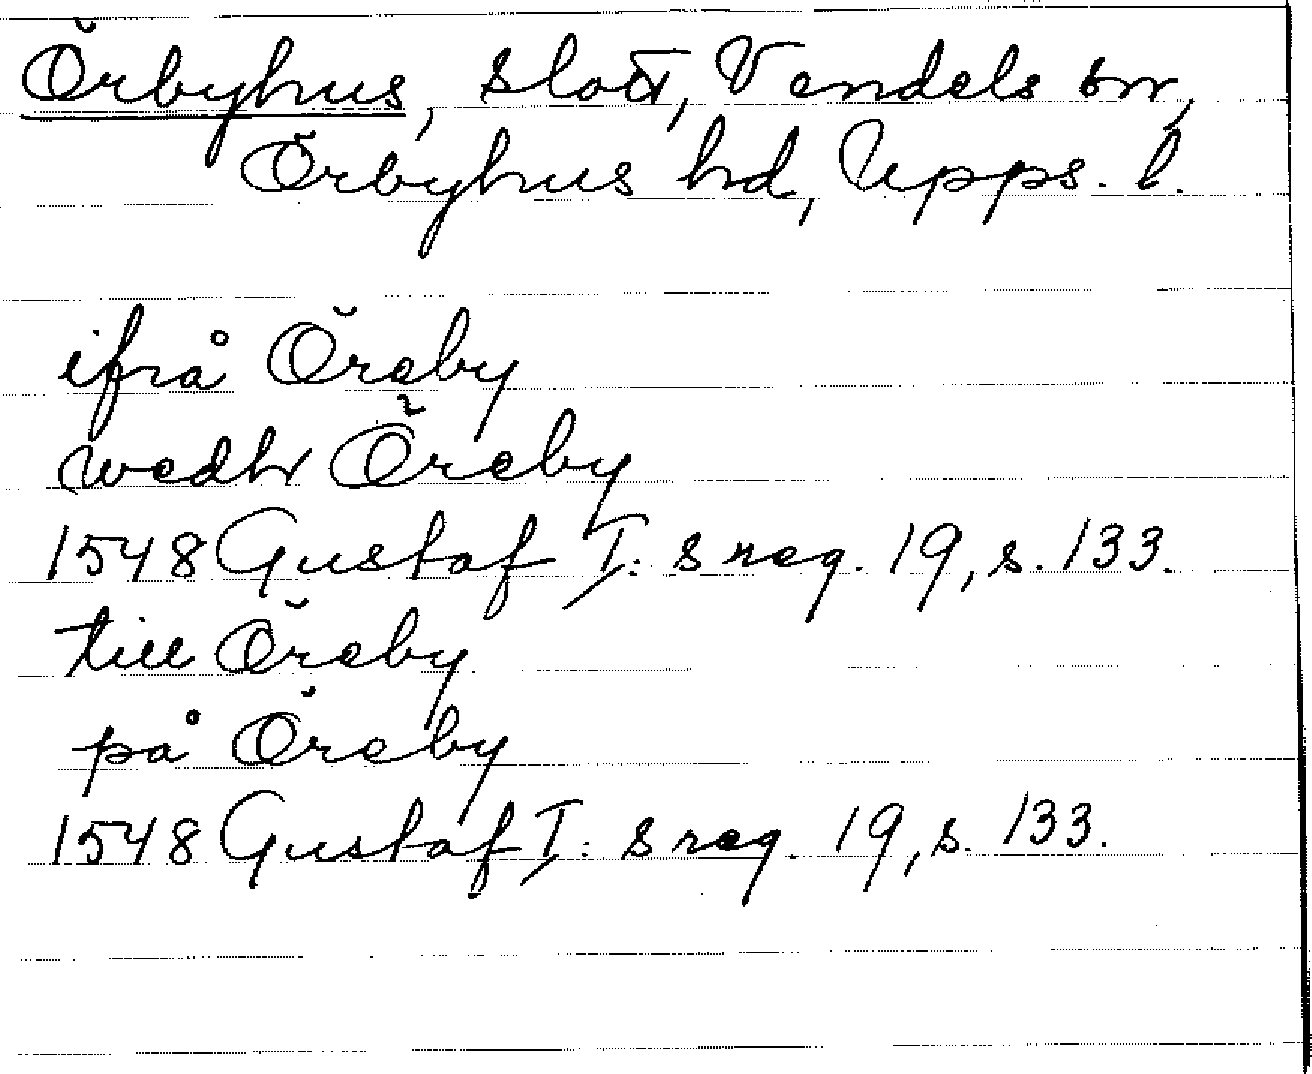 Örbyhus, slott, Vendels sn,
Örbyhus hd, Upps. l.
ifrå Öreby
wedhr Öreby
1548 Gustaf I: s reg. 19, s. 133.
till Öreby
på Öreby
1548 Gustaf I: s reg. 19, s. 133.